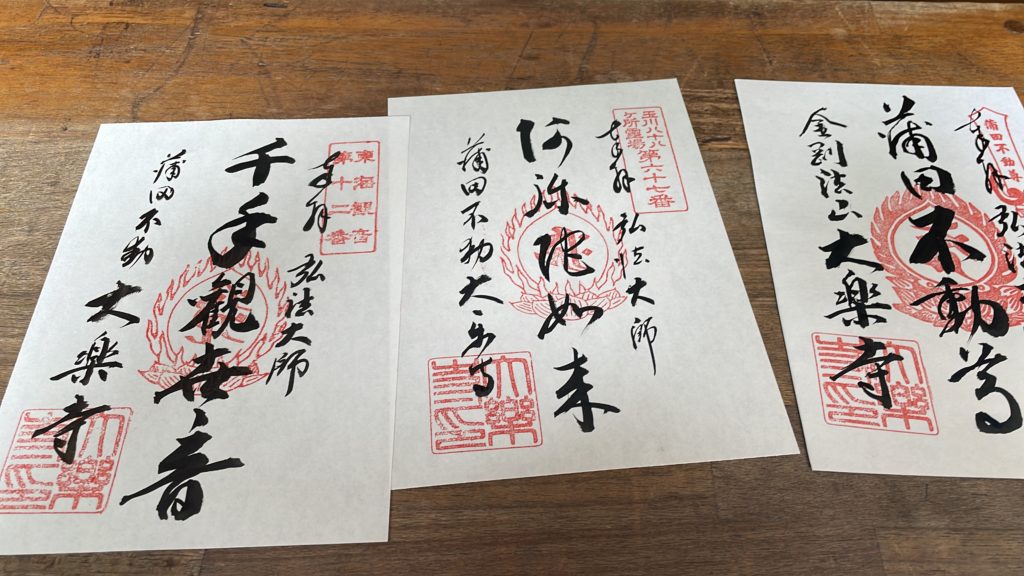 東海観音
第十二番
奉拝
弘法大師
千手観世音
蒲田不動
大楽寺
玉川八十八
ケ所霊場
第六十七番
奉拝
弘法大師
阿弥陀如来
蒲田不動
大楽寺
蒲田不動尊
奉拝
弘法
蒲田不動尊
金剛法山
大楽寺